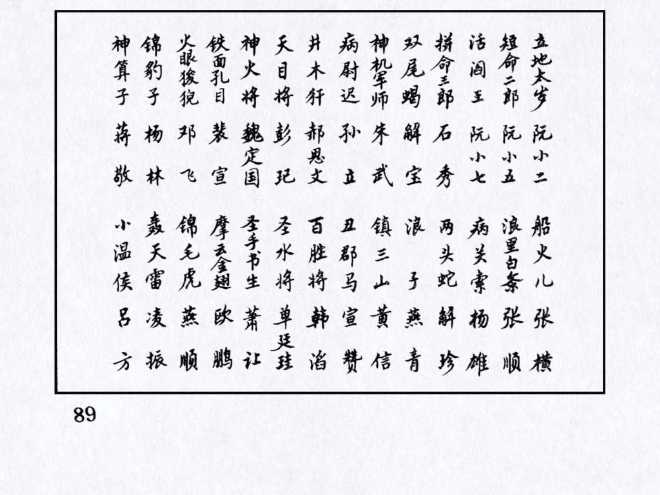 立地太岁 阮小二 船火儿 张横
短命二郎 阮小五 浪里白条 张顺
活阎王 阮小七 病关索 杨雄
拼命三郎 石秀 两头蛇 解珍
双尾蝎 解宝 浪子 燕青
神机军师 朱武 镇三山 黄信
病尉迟 孙立 丑郡马 宣赞
井木犴 郝思文 百胜将 韩滔
天目将 彭玘 圣水将 单廷珪
神火将 魏定国 圣手书生 萧让
铁面孔目 裴宣 摩云金翅 欧鹏
火眼狻猊 邓飞 锦毛虎 燕顺
锦豹子 杨林 轰天雷 凌振
神算子 蒋敬 小温侯 吕方
89